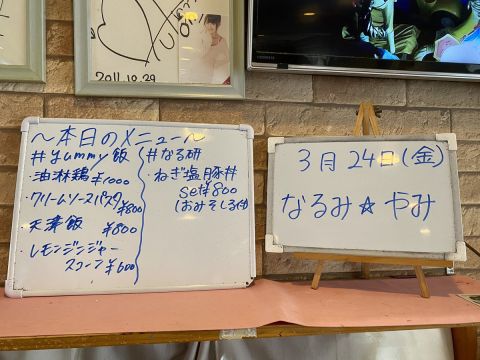 2011.10.29
～本日のメニュー～
#yummy飯
・油淋鶏 ¥1000
・クリームソースパスタ ¥800
・天津飯 ¥800
・レモンジンジャー
スコーン ¥600
#なる研
・ねぎ塩豚丼
set ¥800
(おみそしる付)
3月24日(金)
なるみ☆やみ